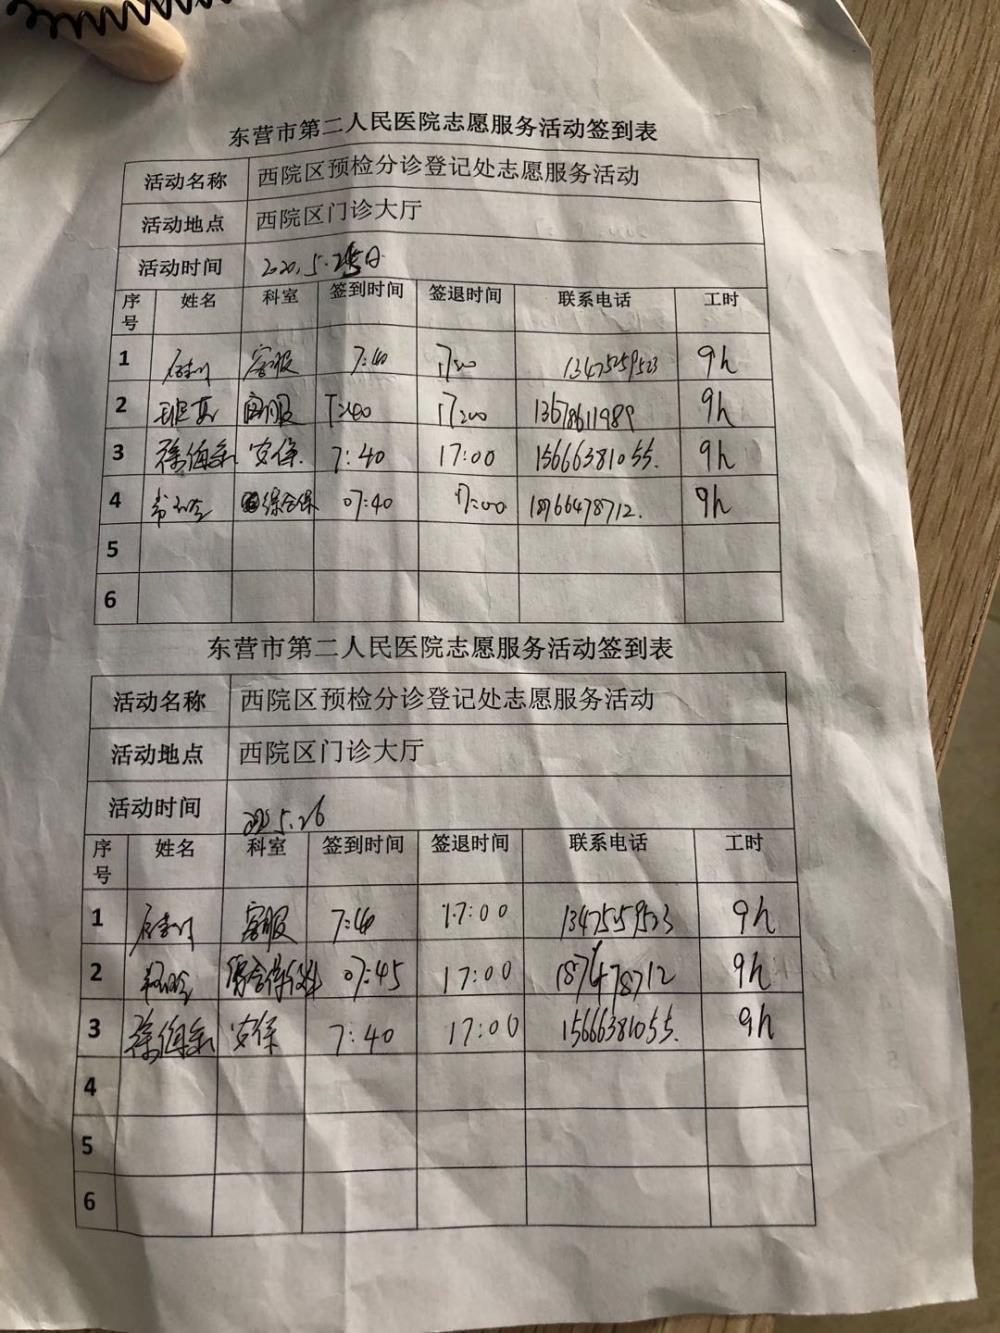 东营市第二人民医院志愿服务活动签到表
活动名称 西院区预检分诊登记处志愿服务活动
活动地点 西院区门诊大厅
活动时间 2020.5.25日
序号 姓名 科室 签到时间 签退时间 联系电话 工时
1 客服 7:40 17:00 13475259523 9h
2 客服 7:40 17:00 9h
3 安保 7:40 17:00 15666381055. 9h
4 综合保 07:40 17:00 18766478712. 9h
5
6
东营市第二人民医院志愿服务活动签到表
活动名称 西院区预检分诊登记处志愿服务活动
活动地点 西院区门诊大厅
活动时间 5.26
序号 姓名 科室 签到时间 签退时间 联系电话 工时
1 客服 7:40 17:00 13475259523 9h
2 07:45 17:00 9h
3 安保 7:40 17:00 15666381055. 9h
4
5
6